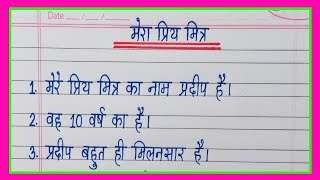 Date
मेरा प्रिय मित्र
1. मेरे प्रिय मित्र का नाम प्रदीप है।
2. वह 10 वर्ष का है।
3. प्रदीप बहुत ही मिलनसार है।